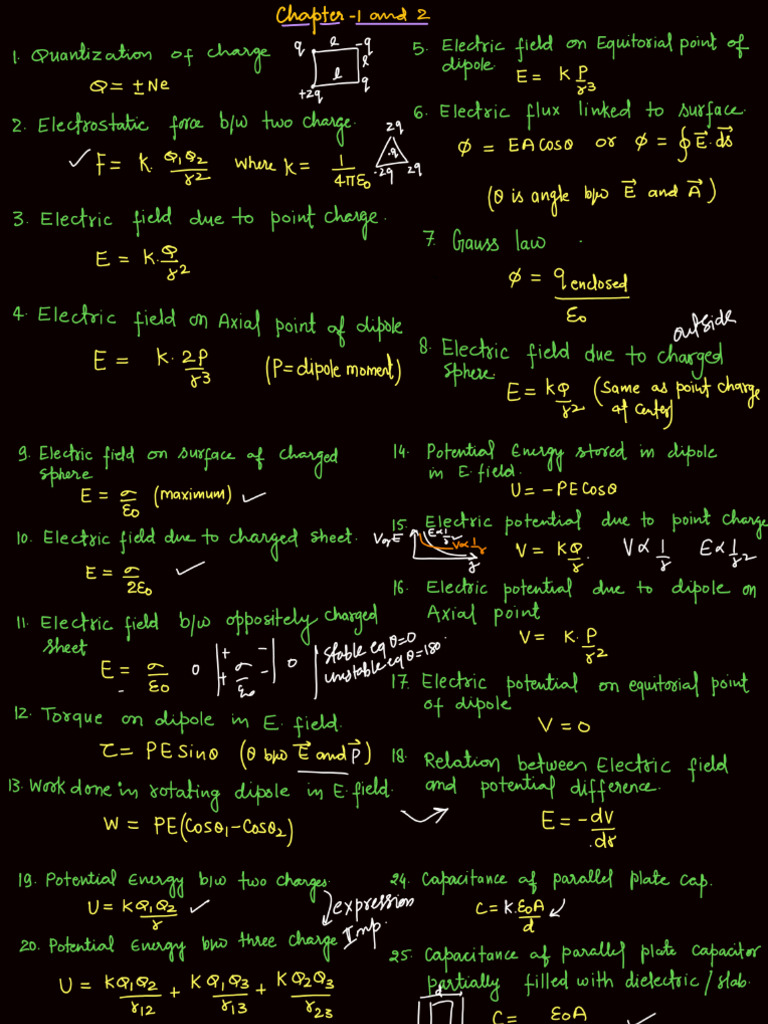 Chapter-1 and 2
1. Quantization of charge
Q = ± Ne
q l -q
l
l
+2q q
2. Electrostatic force b/w two charge.
F = K. Q₁Q₂/r² where K = 1/4πε₀
2q
-q
-2q 2q
3. Electric field due to point charge.
E = K. Q/r²
4. Electric field on Axial point of dipole
E = K. 2P/r³ (P = dipole moment)
5. Electric field on Equitorial point of
dipole.
E = K P/r³
6. Electric flux linked to surface.
ϕ = EA Cosθ or ϕ = ∮E⃗.ds⃗
(θ is angle b/w E⃗ and A⃗)
7. Gauss law
ϕ = q enclosed/ε₀
8. Electric field due to charged outside
sphere.
E = KQ/r² (Same as point charge
at center)
9. Electric field on surface of charged
sphere
E = σ/ε₀ (maximum)
10. Electric field due to charged sheet.
E = σ/2ε₀
11. Electric field b/w oppositely charged
sheet
E = σ/ε₀ 0 + + σ/ε₀ - - 0
stable eq θ=0
unstable eq θ=180
12. Torque on dipole in E. field.
τ = PE Sinθ (θ b/w E⃗ and P⃗)
13. Work done in rotating dipole in E. field.
W = PE(Cosθ₁-Cosθ₂)
14. Potential Energy stored in dipole
in E. field.
U = -PE Cosθ
15. Electric potential due to point charge
V or E E∝1/r² V∝1/r r
V = KQ/r. V∝1/r E∝1/r²
16. Electric potential due to dipole on
Axial point
V = K. P/r²
17. Electric potential on equitorial point
of dipole
V = 0
18. Relation between Electric field
and potential difference.
E = -dv/dr
19. Potential Energy b/w two charges.
U = KQ₁Q₂/r
expression
Imp.
20. Potential Energy b/w three charge
U = KQ₁Q₂/r₁₂ + KQ₁Q₃/r₁₃ + KQ₂Q₃/r₂₃
24. Capacitance of parallel plate cap.
C = K.ε₀A/d
25. Capacitance of parallel plate capacitor
partially filled with dielectric / slab.
d
C = ε₀A